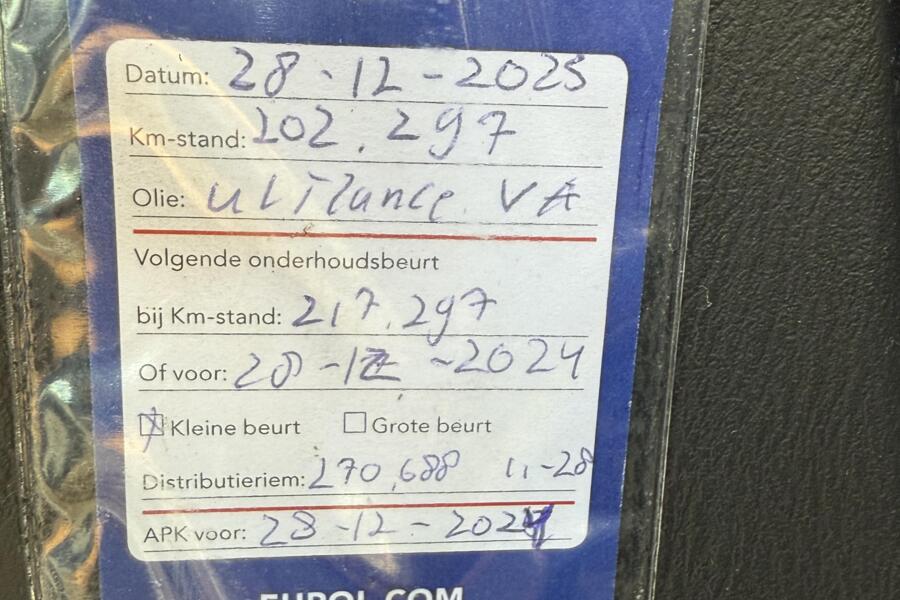 Datum: 28-12-2023
Km-stand: 202.297
Olie: ultrance VA
Volgende onderhoudsbeurt
bij Km-stand: 217.297
Of voor: 28-12-2024
Kleine beurt Grote beurt
Distributieriem: 270.688 11-28
APK voor: 28-12-2024
EUROL.COM